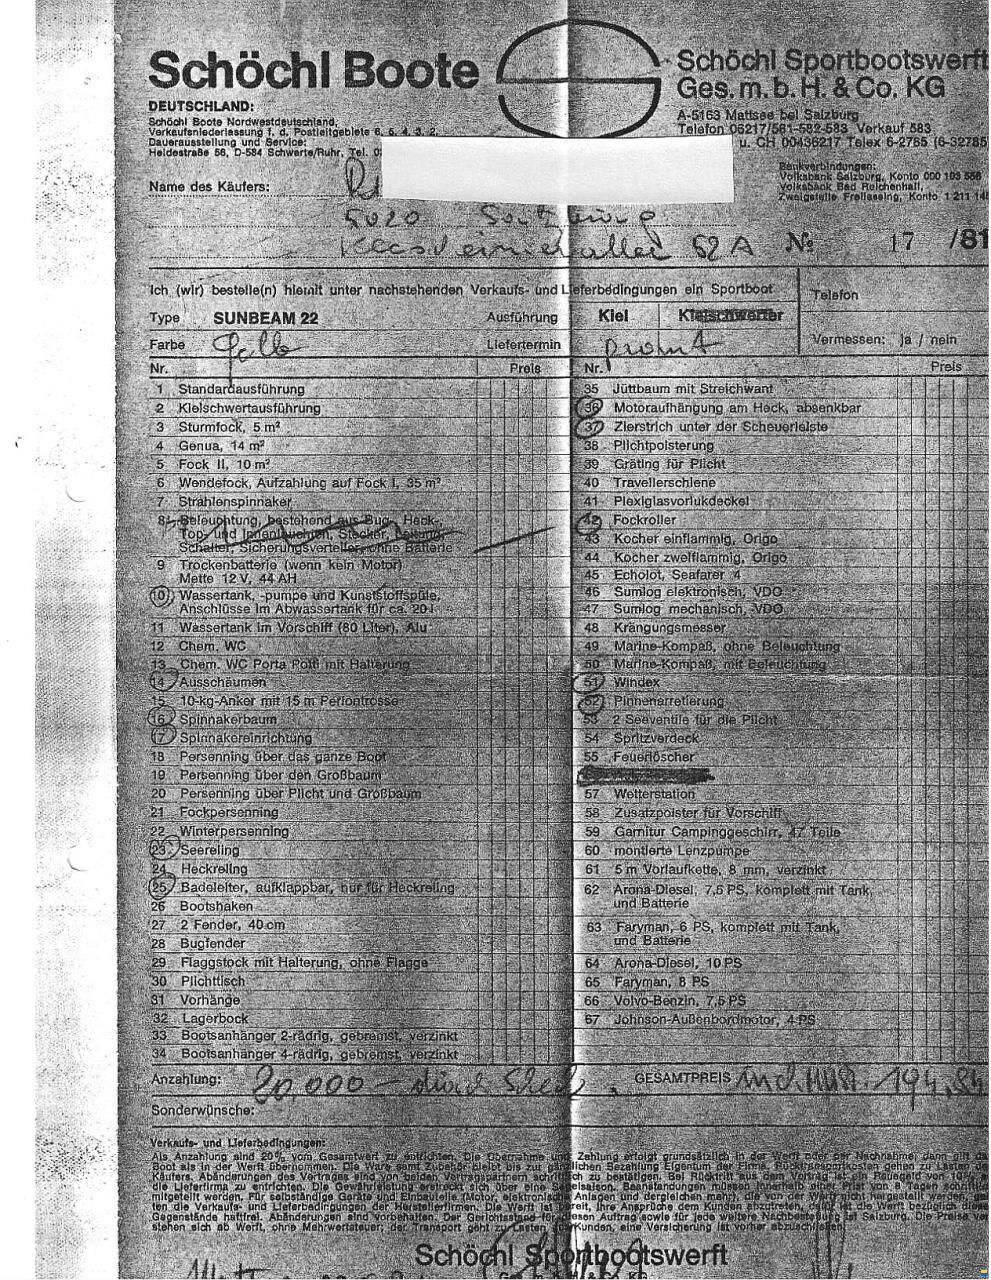 Schöchl Boote
Schöchl Sportbootswerft
Ges. m. b. H. & Co. KG
A-5163 Mattsee bei Salzburg
Telefon 06217/581-582-583 Verkauf 583
u. CH 00436217 Telex 6-2785 (6-32785
DEUTSCHLAND:
Schöchl Boote Nordwestdeutschland,
Verkaufsniederlassung f. d. Postleitgebiete 6, 5, 4, 3, 2.
Dauerausstellung und Service:
Heidestraße 56, D-584 Schwerte/Ruhr, Tel.
Bankverbindungen:
Volksbank Salzburg, Konto 000 103 556
Volksbank Bad Reichenhall,
Zweigstelle Freilassing, Konto 1 211
Name des Käufers:
5020 Salzburg
62 A
№ 17 /81
Ich (wir) bestelle(n) hiemit unter nachstehenden Verkaufs- und Lieferbedingungen ein Sportboot
Telefon
Type SUNBEAM 22 Ausführung Kiel Kielschwerter
Farbe gelb Liefertermin prompt
Vermessen: ja / nein
Nr. Preis Nr. Preis
1 Standardausführung
2 Kielschwertausführung
3 Sturmfock, 5 m²
4 Genua, 14 m²
5 Fock II, 10 m²
6 Wendefock, Aufzahlung auf Fock I, 35 m²
7 Strahlenspinnaker
8 Beleuchtung, bestehend aus Bug-, Heck-,
Top- und Innenleuchten, Stecker, Leitung,
Schalter, Sicherungsverteiler, ohne Batterie
9 Trockenbatterie (wenn kein Motor)
Mette 12 V, 44 AH
10 Wassertank, -pumpe und Kunststoffspüle,
Anschlüsse im Abwassertank für ca. 20 l
11 Wassertank im Vorschiff (80 Liter), Alu
12 Chem. WC
13 Chem. WC Porta Potti mit Halterung
14 Ausschäumen
15 10-kg-Anker mit 15 m Perlontrosse
16 Spinnakerbaum
17 Spinnakereinrichtung
18 Persenning über das ganze Boot
19 Persenning über den Großbaum
20 Persenning über Plicht und Großbaum
21 Fockpersenning
22 Winterpersenning
23 Seereling
24 Heckreling
25 Badeleiter, aufklappbar, nur für Heckreling
26 Bootshaken
27 2 Fender, 40 cm
28 Bugfender
29 Flaggstock mit Halterung, ohne Flagge
30 Plichttisch
31 Vorhänge
32 Lagerbock
33 Bootsanhänger 2-rädrig, gebremst, verzinkt
34 Bootsanhänger 4-rädrig, gebremst, verzinkt
35 Jüttbaum mit Streichwant
36 Motoraufhängung am Heck, absenkbar
37 Zierstrich unter der Scheuerleiste
38 Plichtpolsterung
39 Gräting für Plicht
40 Travellerschiene
41 Plexiglasvorlukdeckel
42 Fockroller
43 Kocher einflammig, Origo
44 Kocher zweiflammig, Origo
45 Echolot, Seafarer 4
46 Sumlog elektronisch, VDO
47 Sumlog mechanisch, VDO
48 Krängungsmesser
49 Marine-Kompaß, ohne Beleuchtung
50 Marine-Kompaß, mit Beleuchtung
51 Windex
52 Pinnenarretierung
53 2 Seeventile für die Plicht
54 Spritzverdeck
55 Feuerlöscher
57 Wetterstation
58 Zusatzpolster für Vorschiff
59 Garnitur Campinggeschirr, 47 Teile
60 montierte Lenzpumpe
61 5 m Vorlaufkette, 8 mm, verzinkt
62 Arona-Diesel, 7,5 PS, komplett mit Tank,
und Batterie
63 Faryman, 6 PS, komplett mit Tank,
und Batterie
64 Arona-Diesel, 10 PS
65 Faryman, 8 PS
66 Volvo-Benzin, 7,5 PS
67 Johnson-Außenbordmotor, 4 PS
Anzahlung: 20.000 – durch Scheck GESAMTPREIS incl. MWSt. 194.
Sonderwünsche:
Verkaufs- und Lieferbedingungen:
Als Anzahlung sind 20% vom Gesamtwert zu entrichten. Die Übernahme und Zahlung erfolgt grundsätzlich in der Werft oder per Nachnahme, dann gilt das
Boot als in der Werft übernommen. Die Ware samt Zubehör bleibt bis zur gänzlichen Bezahlung Eigentum der Firma. Rücktransportkosten gehen zu Lasten de
Käufers. Abänderungen des Vertrages sind von beiden Vertragspartnern schriftlich zu bestätigen. Bei Rücktritt aus dem Vertrag ist ein Reugeld von 10%
die Lieferfirma zu entrichten. Die Gewährleistung erstreckt sich über eine Segelsaison, Beanstandungen müssen innerhalb einer Frist von 8 Tagen schriftlich
mitgeteilt werden. Für selbständige Geräte und Einbauteile (Motor, elektronische Anlagen und dergleichen mehr), die von der Werft nicht hergestellt werden,
ten die Verkaufs- und Lieferbedingungen der Herstellerfirmen. Die Werft ist bereit, ihre Ansprüche dem Kunden abzutreten, dafür ist die Werft bezüglich diese
Gegenstände haftfrei. Abänderungen sind vorbehalten. Der Gerichtsstand für diesen Auftrag sowie für jede weitere Nachbestellung ist Salzburg. Die Preise ver
stehen sich ab Werft, ohne Mehrwertsteuer; der Transport geht zu Lasten des Kunden, eine Versicherung ist vorher abzuschließen.
Schöchl Sportbootswerft
Ges. m. b. H. & Co. KG